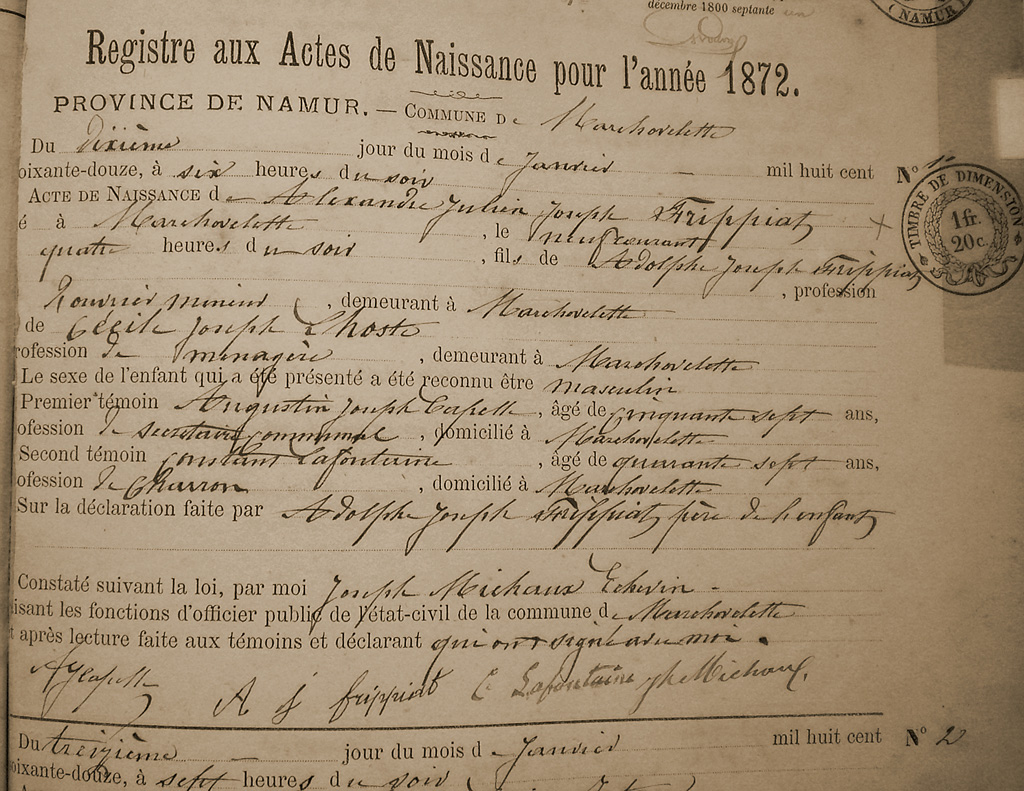 décembre 1800 septante un
(NAMUR)
Registre aux Actes de Naissance pour l'année 1872.
PROVINCE DE NAMUR. — COMMUNE De Marchovelette
Du dixième jour du mois de Janvier mil huit cent N° 1
oixante-douze, à six heures du soir
TIMBRE DE DIMENSION
1 fr.
20 c.
ACTE DE NAISSANCE de Alexandre Julien Joseph Frippiat
é à Marchovelette, le neuf courant
quatre heures du soir, fils de Adolphe Joseph Frippiat
, profession
d'ouvrier mineur, demeurant à Marchovelette
de Cécile Joseph Lhoste
rofession de ménagère, demeurant à Marchovelette
Le sexe de l'enfant qui a été présenté a été reconnu être masculin
Premier témoin Augustin Joseph Capelle, âgé de cinquante sept ans,
ofession de secrétaire communal, domicilié à Marchovelette
Second témoin Constant Lafontaine, âgé de quarante sept ans,
ofession de Charron, domicilié à Marchovelette
Sur la déclaration faite par Adolphe Joseph Frippiat, père de l'enfant
Constaté suivant la loi, par moi Joseph Michaux Echevin -
isant les fonctions d'officier public de l'état-civil de la commune de Marchovelette
t après lecture faite aux témoins et déclarant qui ont signé avec moi.
AJCapelle
A J frippiat C Lafontaine Jh Michaux
Du treizième jour du mois de Janvier mil huit cent N° 2
oixante-douze, à sept heures du soir